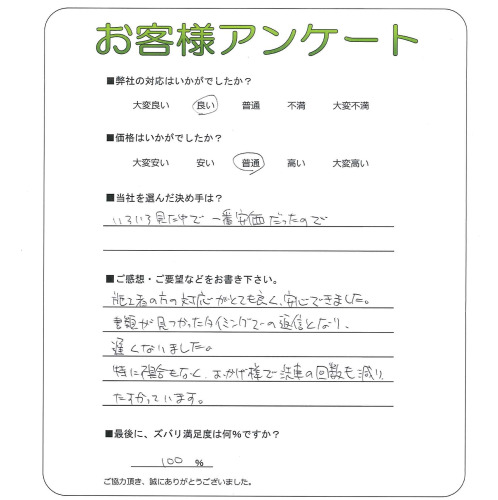 お客様アンケート
■弊社の対応はいかがでしたか?
大変良い 良い 普通 不満 大変不満
■価格はいかがでしたか?
大変安い 安い 普通 高い 大変高い
■当社を選んだ決め手は?
いろいろ見た中で 一番安価だったので
■ご感想・ご要望などをお書き下さい。
施工者の方の対応がとても良く、安心できました。
書類が見つかったタイミングでの返信となり、
遅くなりました。
特に不具合もなく、おかげ様で洗車の回数も減り、
たすかっています。
■最後に、ズバリ満足度は何%ですか?
100 %
ご協力頂き、誠にありがとうございました。